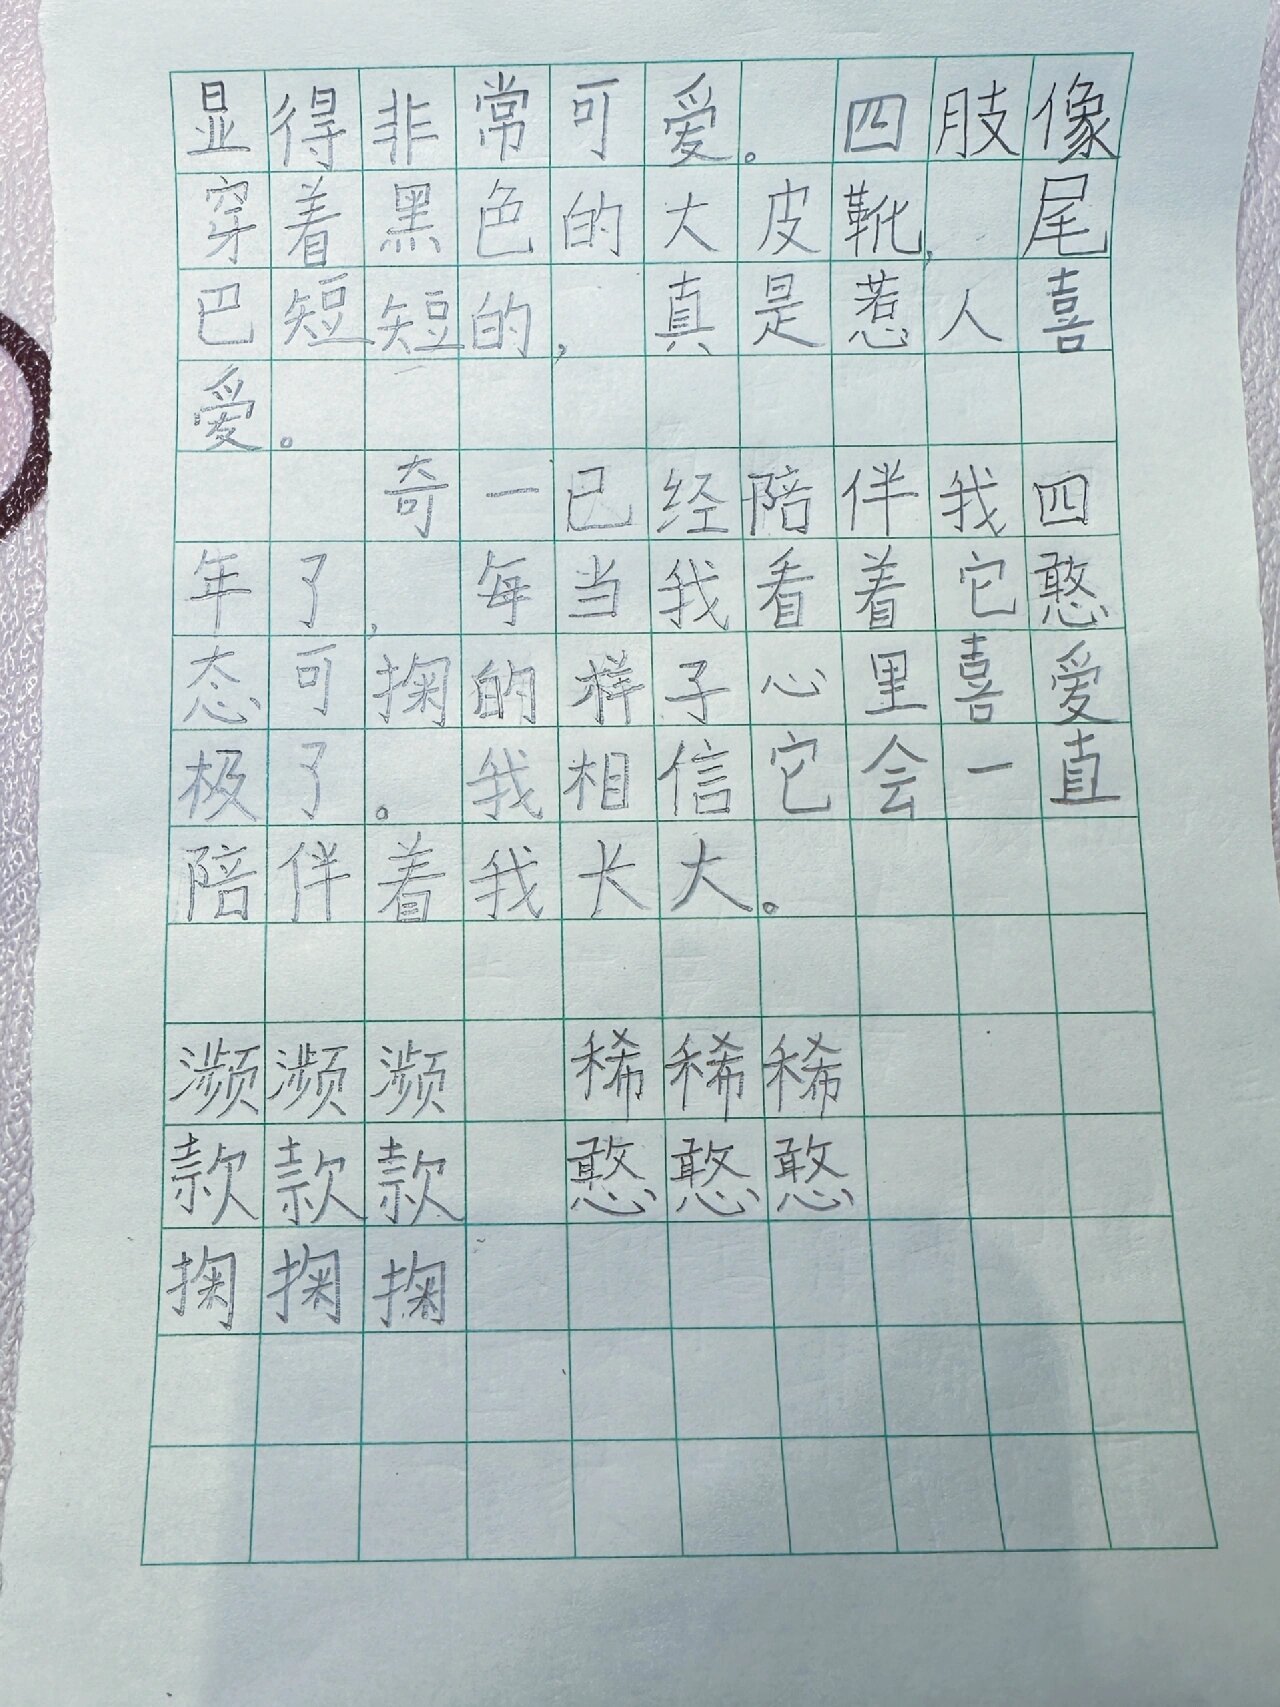 显得非常可爱。四肢像
穿着黑色的大皮靴,尾
巴短短的,真是惹人喜
爱。
奇一已经陪伴我四
年了,每当我看着它憨
态可掬的样子心里喜爱
极了。我相信它会一直
陪伴着我长大。
濒濒濒 稀稀稀
款款款 憨憨憨
掬掬掬